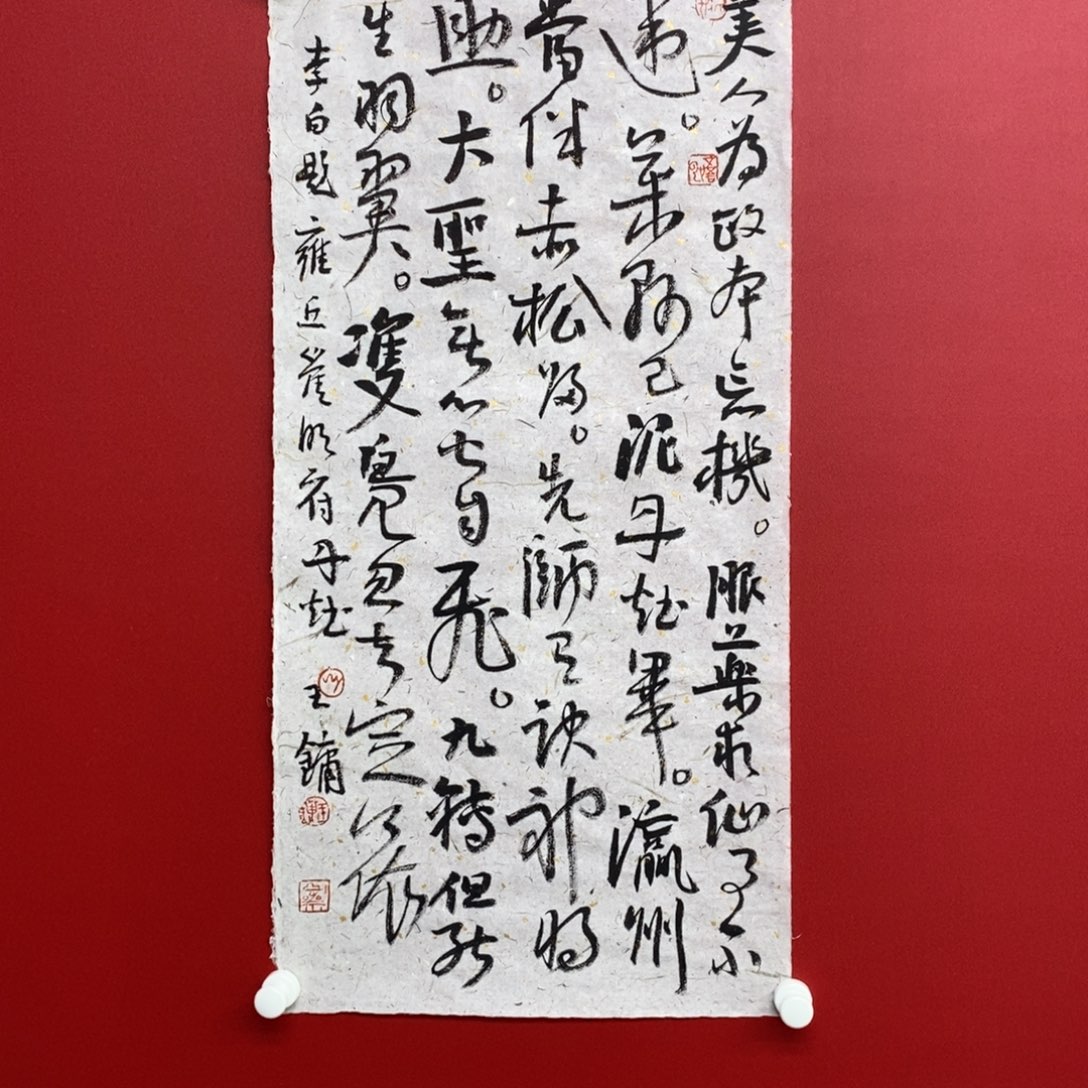 美人為政本忘機。服藥求仙事不
違。葉縣已泥丹灶畢。瀛州
當伴赤松歸。先師有訣神將
助。大聖無心火自飛。九轉但能
生羽翼。雙鳧忽去定何依
李白題雍丘崔明府丹灶 王鏞